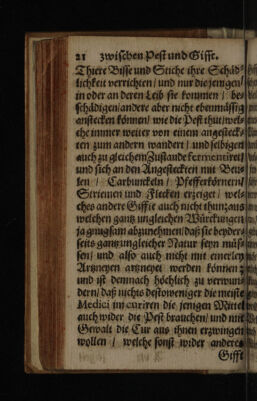 21 zwischen Pest und Gifft.
Thiere Bisse und Stiche ihre Schäd-
lichkeit verrichten / und nur die jenigen /
in oder an deren Leib sie kommen / be-
schädigen / andere aber nicht ebenmässig
anstecken können / wie die Pest thut / wel-
che immer weiter von einem angesteck-
ten zum andern wandert / und selbigen
auch zu gleichem Zustande fermentiret /
und sich an den Angesteckten mit Beu-
len / Carbunckeln / Pfefferkörnern /
Striemen und Flecken erzeiget / wel-
ches andere Giffte auch nicht thun / aus
welchen gantz ungleichen Würckungen
ja gnugsam abzunehmen / daß sie beyder-
seits gantz ungleicher Natur seyn müs-
sen / und also auch nicht mit einerley
Artzneyen artzneyet werden können;
und ist dennoch höchlich zu verwun-
dern / daß nichts destoweniger die meiste
Medici im curiren die jenigen Mittel
auch wider die Pest brauchen / und mit
Gewalt die Cur aus ihnen erzwingen
wollen / welche sonst wider anderes
Gifft